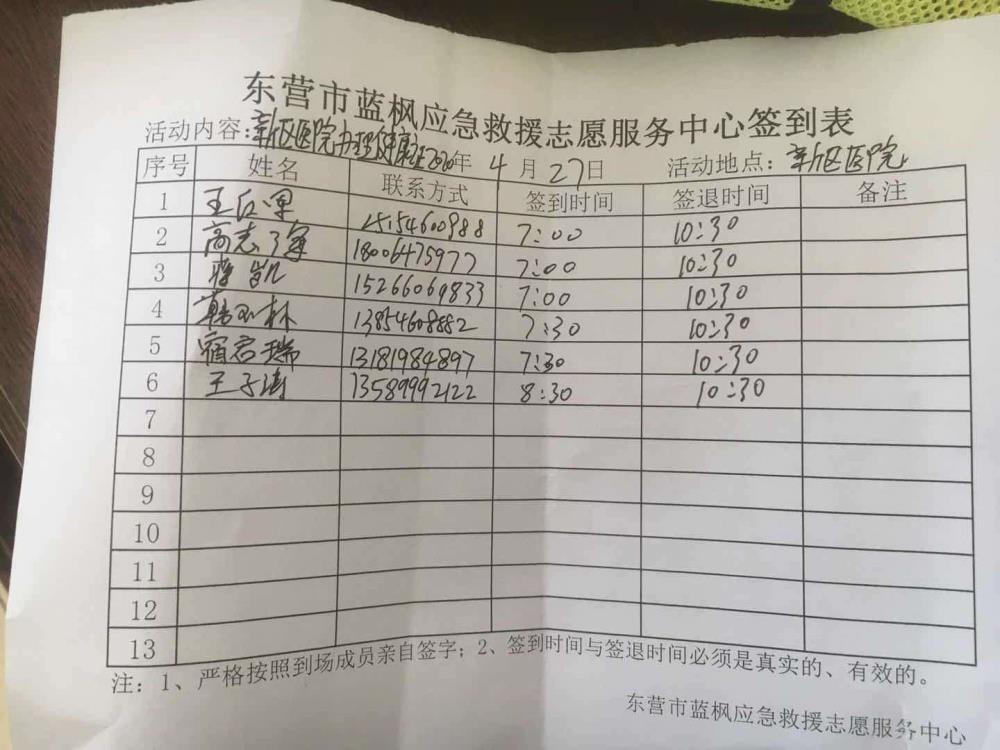 东营市蓝枫应急救援志愿服务中心签到表
活动内容：新区医院办理健康证2020年4月27日 活动地点：新区医院
序号 姓名 联系方式 签到时间 签退时间 备注
1 王 15154600988 7:00 10:30
2 高志军 18006475977 7:00 10:30
3 蒋凯 15266069833 7:00 10:30
4 韩林 13854608882 7:30 10:30
5 宿君瑞 13181984897 7:30 10:30
6 王子涛 13589992122 8:30 10:30
7
8
9
10
11
12
13
注：1、严格按照到场成员亲自签字；2、签到时间与签退时间必须是真实的、有效的。
东营市蓝枫应急救援志愿服务中心